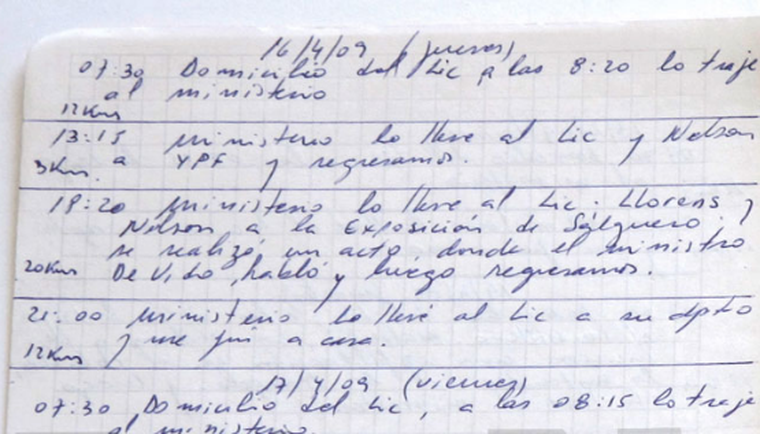 16/4/09 (jueves)
07:30 Domicilio del Lic a las 8:20 lo traje
al ministerio
12Km
13:15 Ministerio lo llevé al Lic y Nelson
3Km. a YPF y regresamos.
18:20 Ministerio lo llevé al Lic. Llorens y
Nelson a la Exposición de Salguero.
se realizó un acto, donde el ministro
20Km De Vido, habló y luego regresamos.
21:00 Ministerio lo llevé al Lic a su dpto
12Km y me fui a casa.
17/4/09 (viernes)
07:30 Domicilio del Lic, a las 08:15 lo traje
al ministerio.